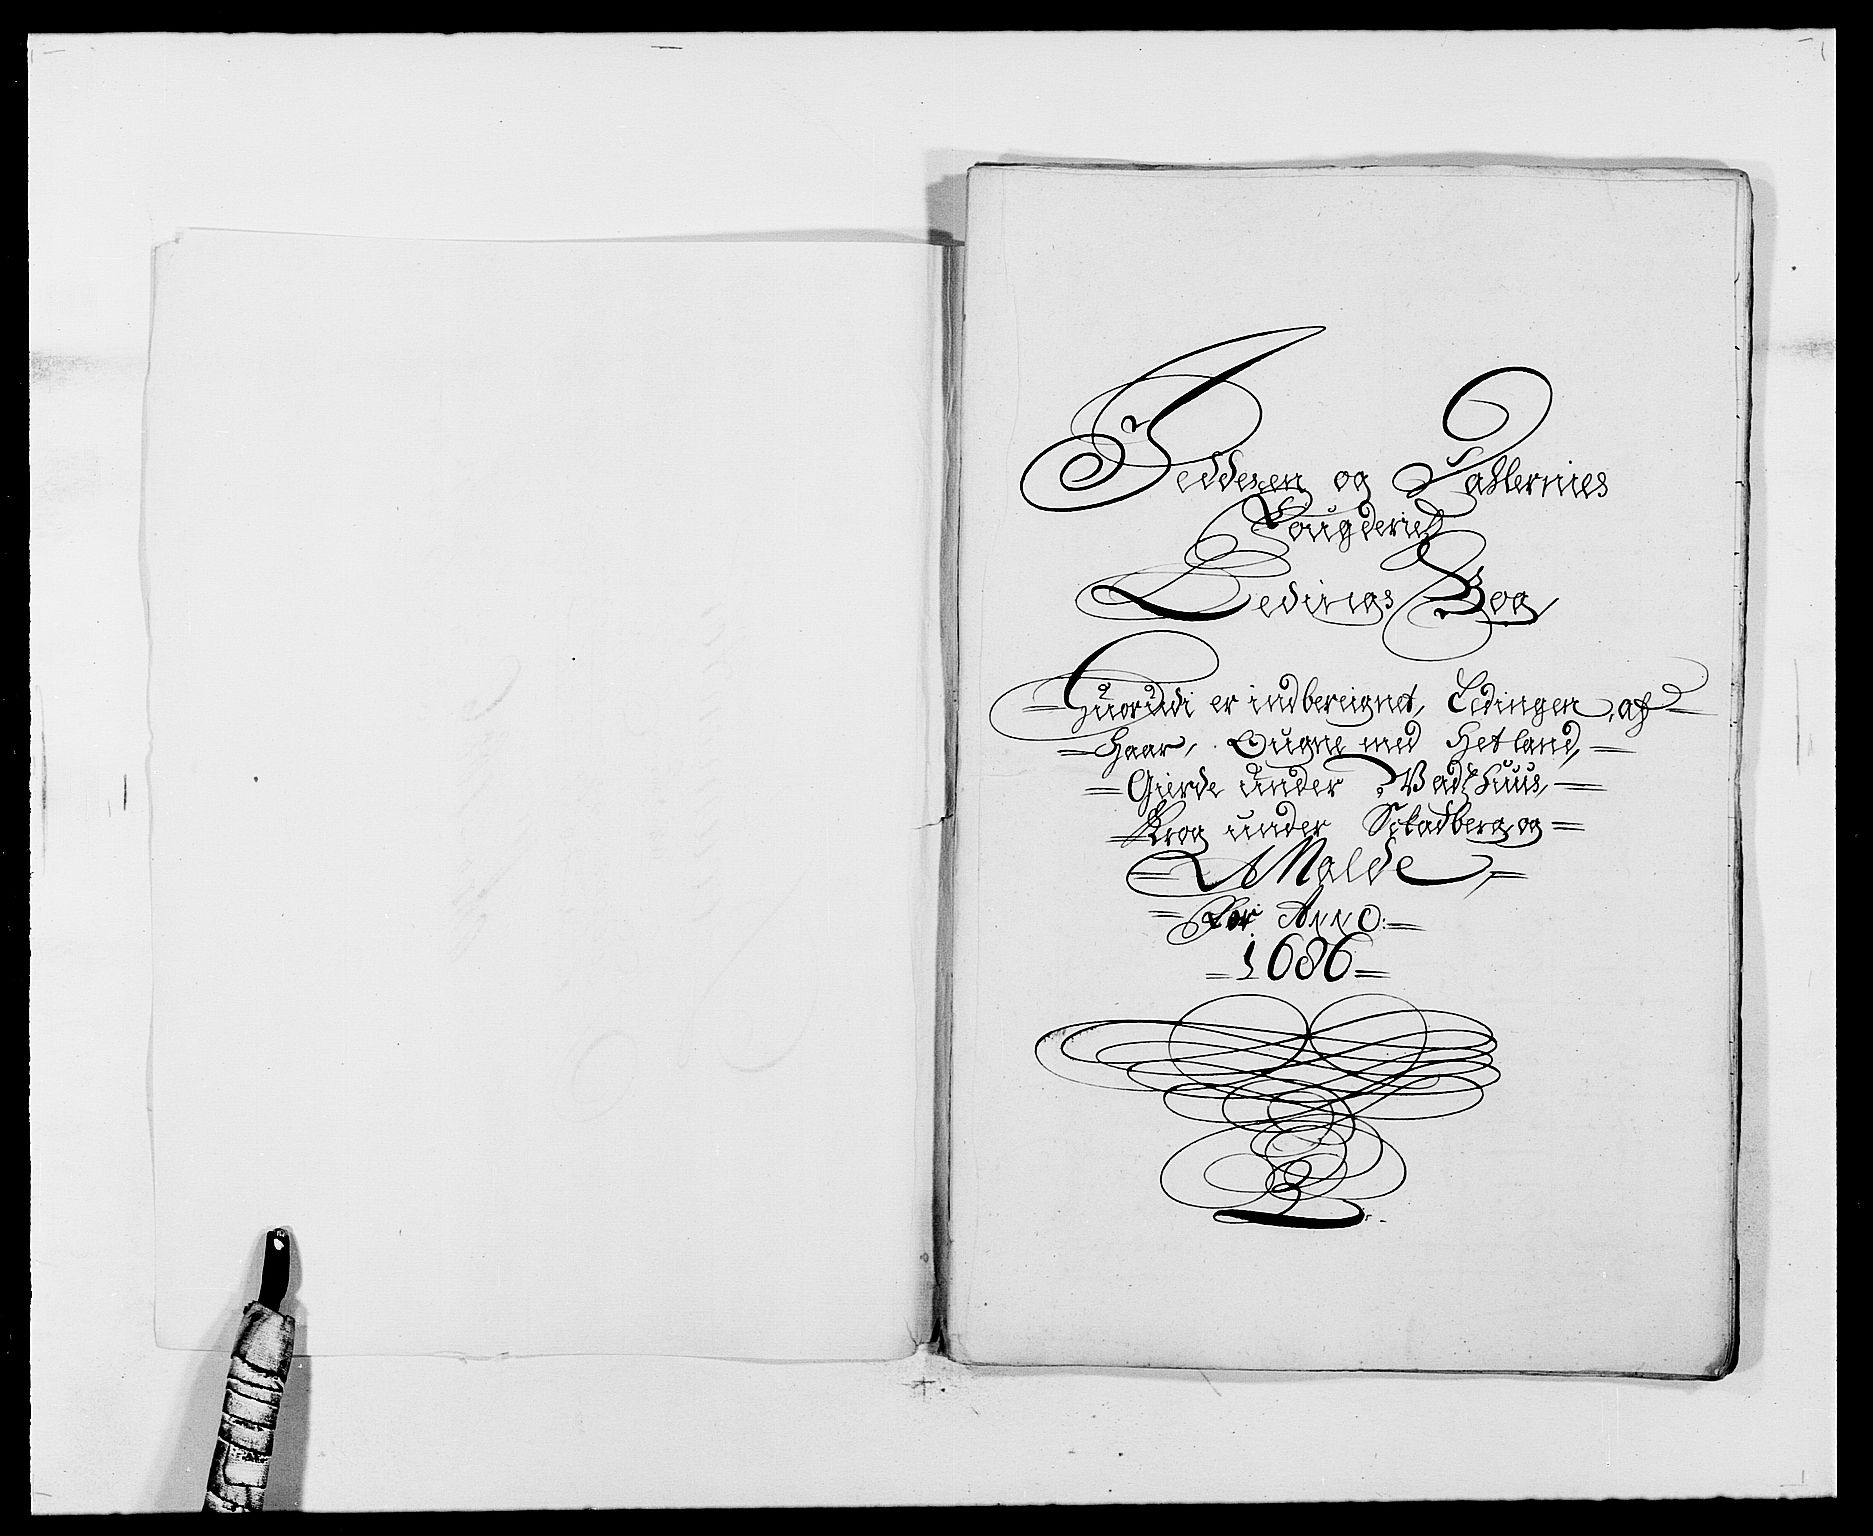 Jedderen og Dahlernies
Fougderies
Ledings Bog
Huorudi er indbereignet, Ledingen, af
Haar, Sugne med Hetland,
Gierde under Vadshuus,
Krog under Schadberg, og
Malde
For Anno:
1686